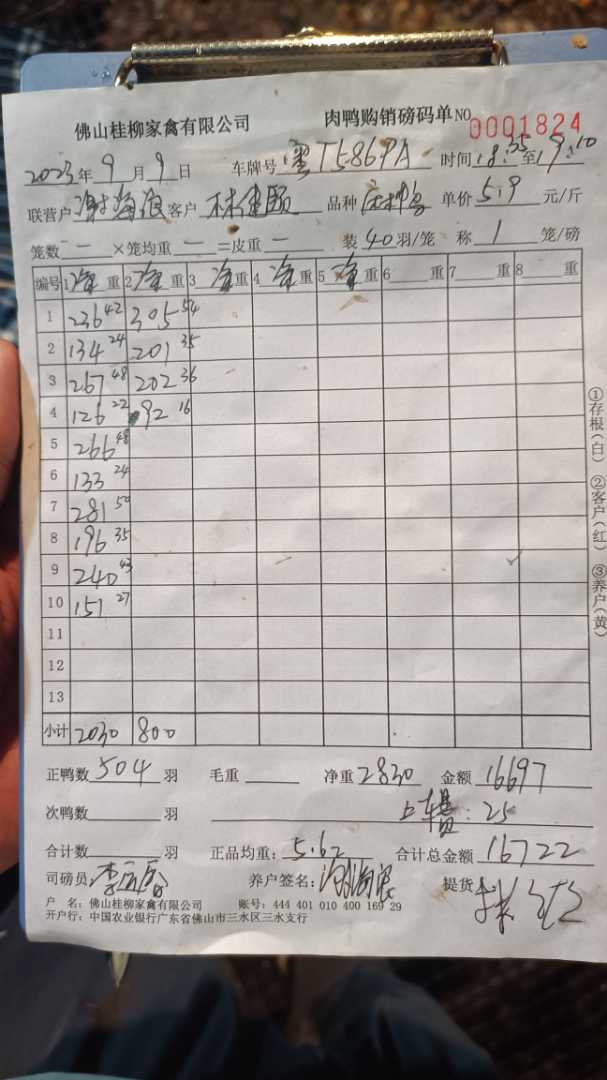 佛山桂柳家禽有限公司 肉鸭购销磅码单 NO 0001824
2023年9月9日 车牌号 粤T5869A 时间18:35至19:10
联营户 客户 品种 单价5.9元/斤
笼数 一 ×笼均重 一 =皮重 一 装40羽/笼 称1笼/磅
编号 1净重 2净重 3净重 4净重 5净重 6重 7重 8重
1 236 42 305 54
2 134 24 201 35
3 267 48 202 36
4 126 22 92 16
5 266 48
6 133 24
7 281 50
8 196 35
9 240 43
10 151 27
11
12
13
小计 2030 800
正鸭数504羽 毛重 净重2830 金额16697
次鸭数 羽 上车费:25
合计数 羽 正品均重:5.62 合计总金额16722
司磅员 养户签名: 提货
户 名:佛山桂柳家禽有限公司 账号:444 401 010 400 169 29
开户行:中国农业银行广东省佛山市三水区三水支行
①存根(白) ②客户(红) ③养户(黄)